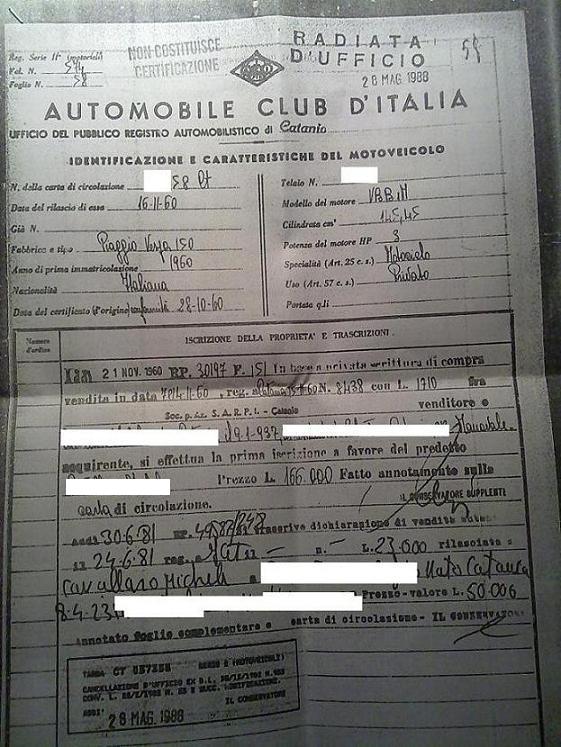 Reg. Serie IIª (motocicli)
Vol. N. 574
Foglio N. 58
NON COSTITUISCE
CERTIFICAZIONE
RADIATA
D'UFFICIO
28 MAG. 1988
58
AUTOMOBILE CLUB D'ITALIA
UFFICIO DEL PUBBLICO REGISTRO AUTOMOBILISTICO di Catania
IDENTIFICAZIONE E CARATTERISTICHE DEL MOTOVEICOLO
N. della carta di circolazione 58 Ct
Data del rilascio di essa 16-11-60
Già N.
Fabbrica e tipo Piaggio Vespa 150
Anno di prima immatricolazione 1960
Nazionalità Italiana
Data del certificato (d'origine) conformità 28-10-60
Telaio N.
Modello del motore VBB1M
Cilindrata cm³ 145,45
Potenza del motore HP 3
Specialità (Art. 25 c. s.) Motociclo
Uso (Art. 57 c. s.) Privato
Portata q.li
Numero d'ordine
ISCRIZIONE DELLA PROPRIETÀ E TRASCRIZIONI
21 NOV. 1960 RP. 30197 F. 151 In base a privata scrittura di compra
vendita in data 11-60, reg. a 11-60 N. 8438 con L. 1710 fra
Soc. p. az. S. A. R. P. I. - Catania venditore e
9.1-937 Manovale
acquirente, si effettua la prima iscrizione a favore del predetto
Prezzo L. 166.000 Fatto annotamento sulla
carta di circolazione.
IL CONSERVATORE SUPPLENTE
Addì 30.6.81 RP. si trascrive dichiarazione di vendita auten.
il 24.6.81 reg. a n. L. 23.000 rilasciata
Cavallaro Michele a Nato Catania
8-4-23 Prezzo-valore L. 50.000
Annotato foglio complementare e carta di circolazione - IL CONSERVATORE
TARGA CT 057358 SERIE 2 (MOTOVEICOLI)
CANCELLAZIONE D'UFFICIO EX D.L. 30/12/1982 N. 953
CONV. L. 28/2/1983 N. 53 E SUCC. MODIFICAZIONI.
ADDI' 28 MAG. 1988 IL CONSERVATORE